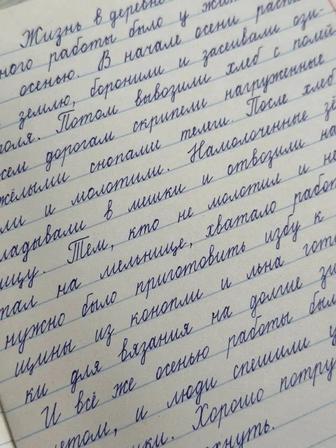 Жизнь в деревне
ного работы было у
осенью. В начале осени распа
землю, боронили и засеивали ози-
поля. Потом вывозили хлеб с полей
сем дорогам скрипели нагруженные
жёлыми снопами телеги. После хлеб
ли и молотили. Намолоченные зё
ладывали в мешки и отвозили на
ницу. Тем, кто не молотил и не
тал на мельнице, хватало работ
нужно было приготовить избу к
щины из конопли и льна гото
ки для вязания на долгие з
И всё же осенью работы был
летом, и люди спешили
ики. Хорошо потру
хнуть.